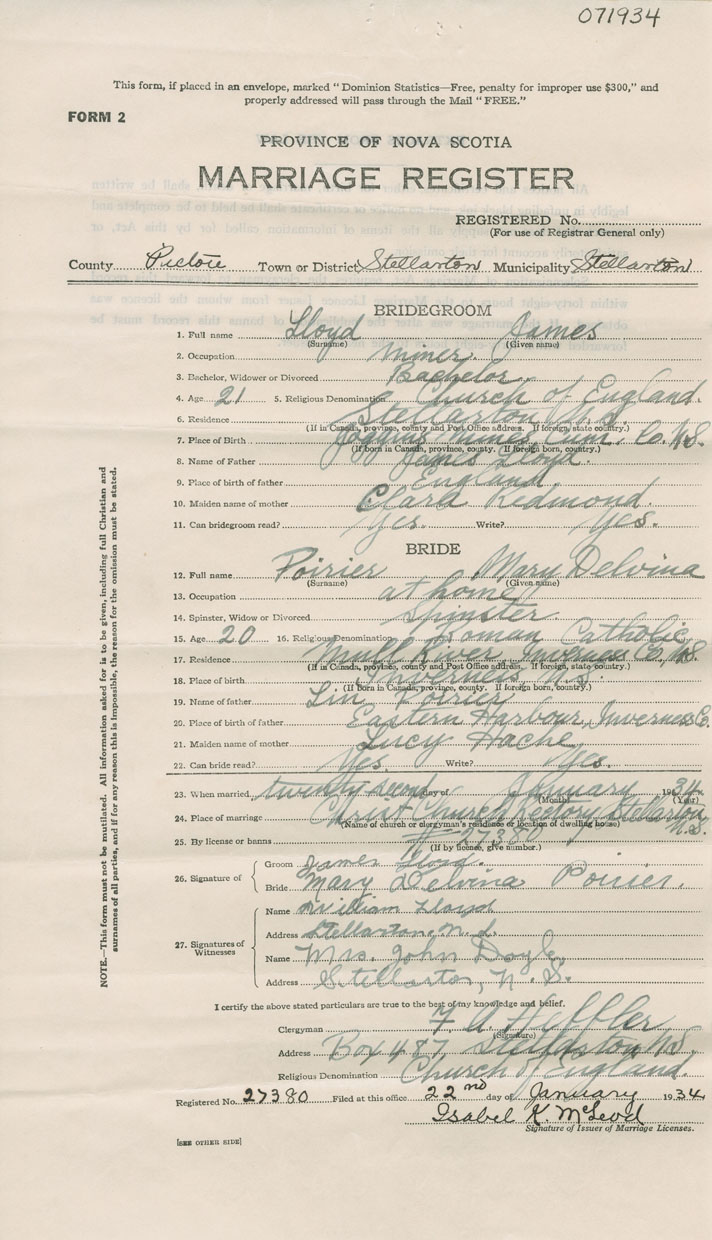 071934
This form, if placed in an envelope, marked "Dominion Statistics—Free, penalty for improper use $300," and
properly addressed will pass through the Mail "FREE."
FORM 2
PROVINCE OF NOVA SCOTIA
MARRIAGE REGISTER
REGISTERED No.
(For use of Registrar General only)
County Pictou Town or District Stellarton Municipality Stellarton
BRIDEGROOM
1. Full name Lloyd James
(Surname) (Given name)
2. Occupation Miner
3. Bachelor, Widower or Divorced Bachelor
4. Age 21 5. Religious Denomination Church of England.
6. Residence Stellarton N.S.
(If in Canada, province, county and Post Office address. If foreign, state country.)
7. Place of Birth Joggins Mines, Cum. Co. N.S.
(If born in Canada, province, county. If foreign born, country.)
8. Name of Father James Lloyd.
9. Place of birth of father England.
10. Maiden name of mother Clara Redmond.
11. Can bridegroom read? Yes. Write? Yes.
BRIDE
12. Full name Poirier Mary Delvina
(Surname) (Given name)
13. Occupation at home
14. Spinster, Widow or Divorced Spinster.
15. Age 20 16. Religious Denomination Roman Catholic
17. Residence Mull River Inverness Co. N.S.
(If in Canada, province, county and Post Office address. If foreign, state country.)
18. Place of birth Inverness N.S.
(If born in Canada, province, county. If foreign born, country.)
19. Name of father Poirier
20. Place of birth of father Eastern Harbour, Inverness Co.
21. Maiden name of mother Lucy Hache
22. Can bride read? Yes Write? Yes.
23. When married twenty second day of January 1934
(Month) (Year)
24. Place of marriage Christ Church Rectory Stellarton
N.S.
(Name of church or clergyman's residence or location of dwelling house)
25. By license or banns # 27380
(If by license, give number.)
26. Signature of
Groom James Lloyd.
Bride Mary Delvina Poirier.
27. Signatures of Witnesses
Name William Lloyd
Address Stellarton, N.S.
Name Mrs. John Doyle
Address Stellarton, N.S.
I certify the above stated particulars are true to the best of my knowledge and belief.
Clergyman
(Signature)
Address Box 487, Stellarton N.S.
Religious Denomination Church of England.
Registered No. 27380 Filed at this office 22nd day of January 1934
Isabel K. McLeod
Signature of Issuer of Marriage Licenses.
[SEE OTHER SIDE]
NOTE.—This form must not be mutilated. All information asked for is to be given, including full Christian and
surnames of all parties, and if for any reason this is impossible, the reason for the omission must be stated.